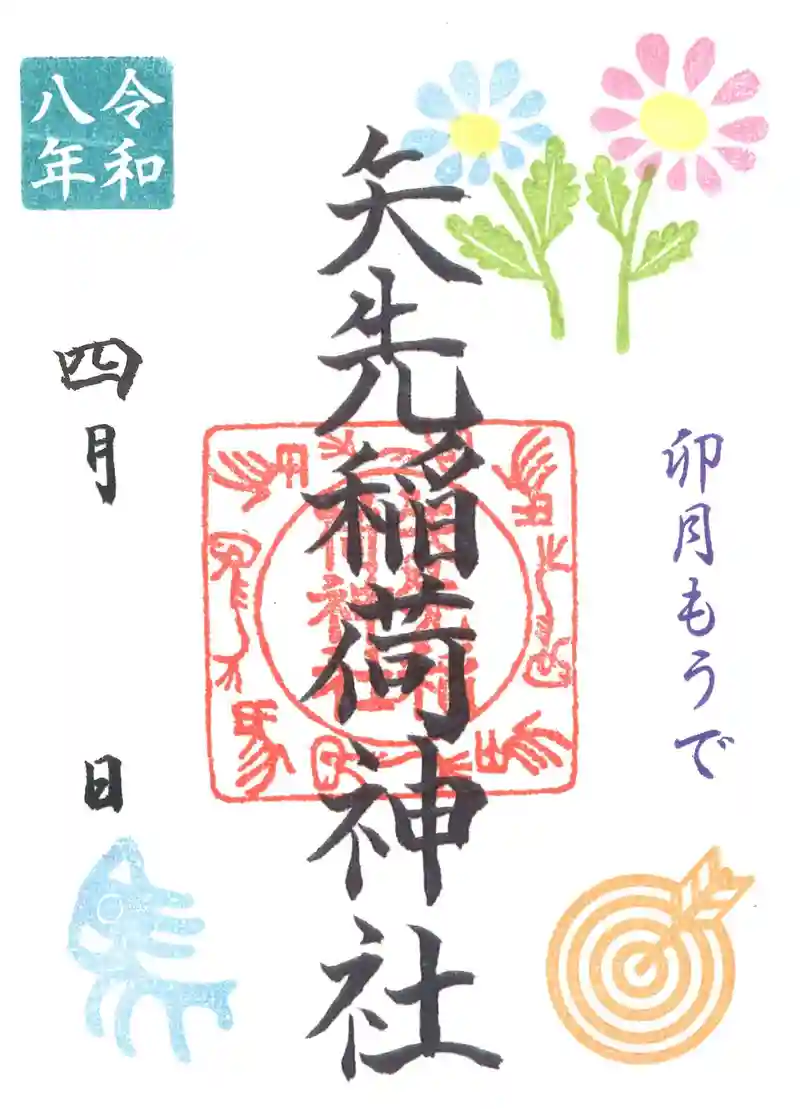 卯月もうで
矢先稲荷神社
令和
八年
四月
日